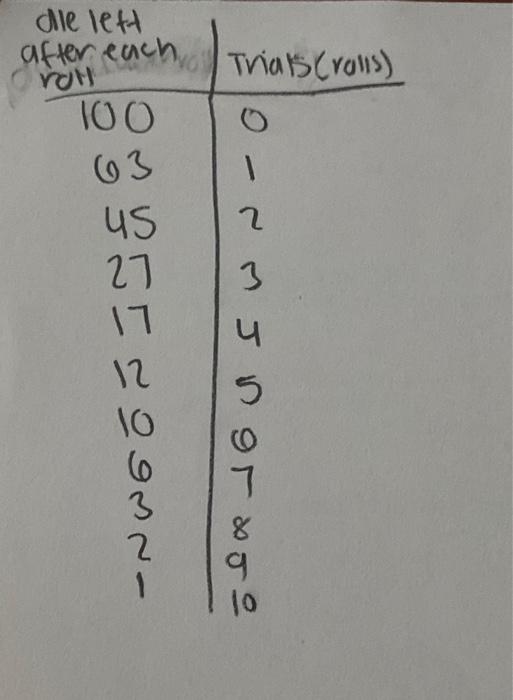 die left
after each
roll
Trials (rolls)
100 0
63 1
45 2
27 3
17 4
12 5
10 6
6 7
3 8
2 9
1 10